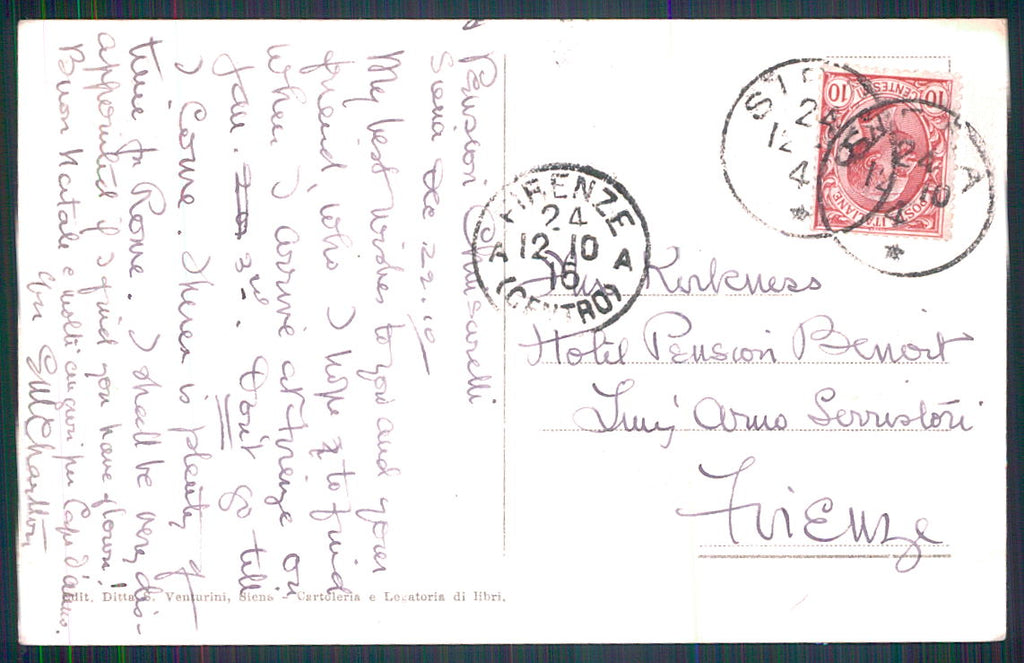 Pension Chiusarelli
Siena Dec 22. 10
My best wishes to you and your
friend, who I hope to find
when I arrive at Firenze on
Jan. 3rd. Don't go till
I come. There is plenty of
time for Rome. I shall be very dis-
appointed if I find you have flown!
Buon Natale e molti auguri per Capo d'anno.
Miss Kirkness
Hotel Pension Benoit
Lung Arno Serristori
Firenze
SIENA
24
12
4
SIENA
24
12 10
4
FIRENZE
24
A 12 10 A
16
(CENTRO)
10 CENTESIMI 10
POSTE ITALIANE
Edit. Ditta S. Venturini, Siena - Cartoleria e Legatoria di libri.